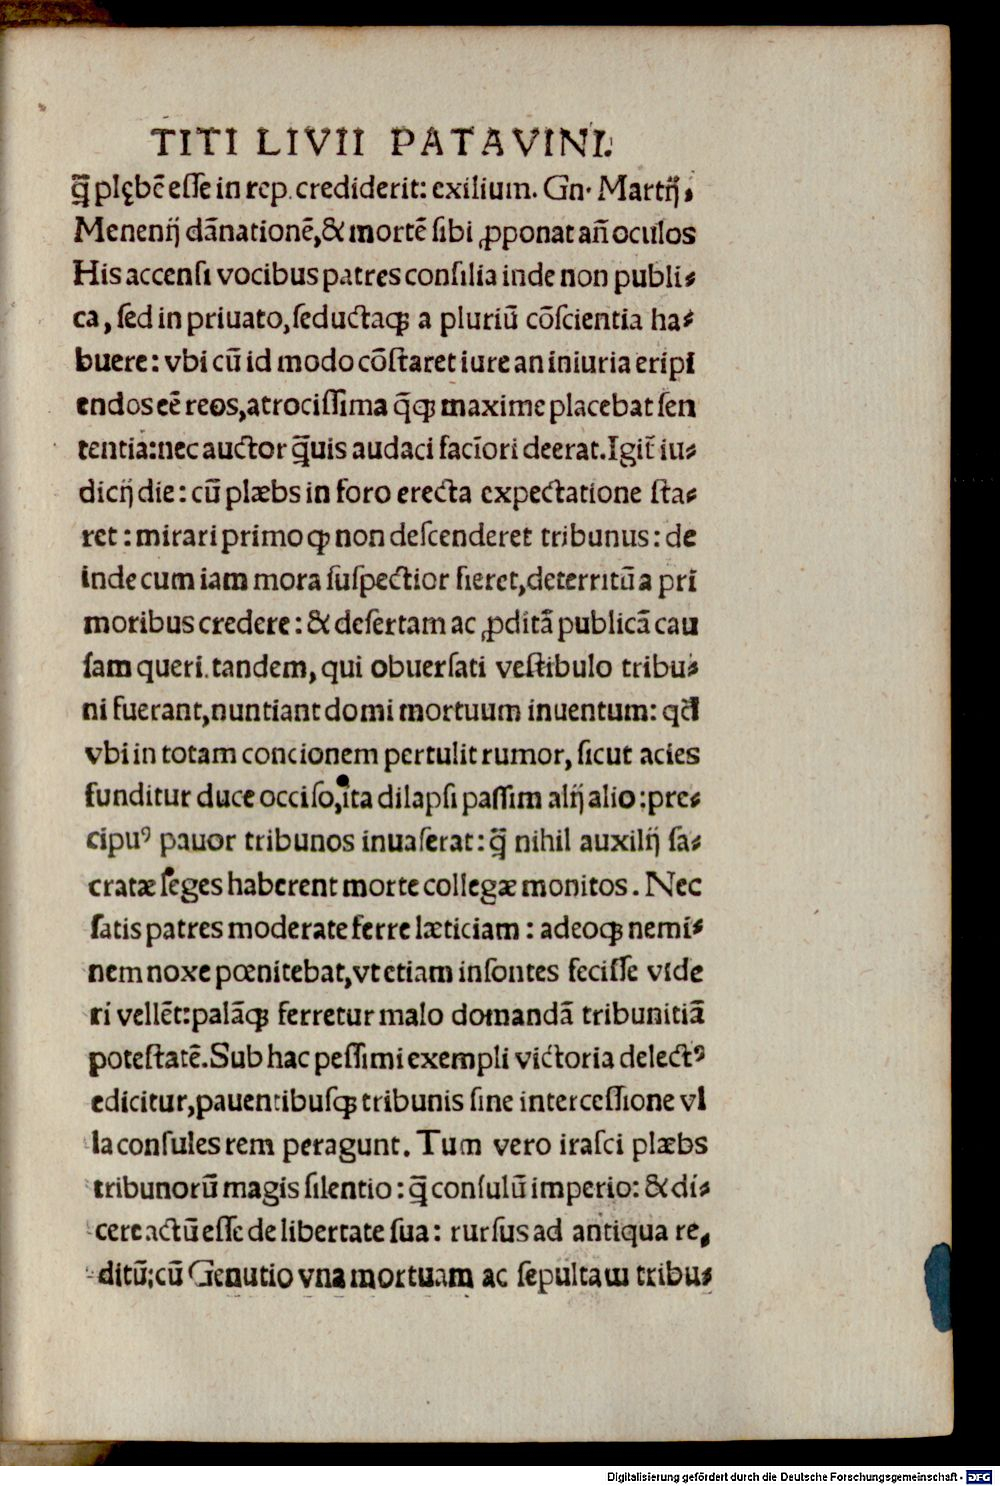 TITI LIVII PATAVINI.
q̃ plębē eſſe in rep. crediderit: exilium. Gn· Martij,
Menenij dānationē,& mortē ſibi ꝓponat an̄ oculos
His accenſi vocibus patres conſilia inde non publi⸗
ca, ſed in priuato, ſeductaqꝫ a pluriū cōſcientia ha⸗
buere: vbi cū id modo cōſtaret iure an iniuria eripi
endos eē reos, atrociſſima q̄qꝫ maxime placebat ſen
tentia: nec auctor q̃uis audaci facīori deerat. Igit̄ iu⸗
dicij die: cū plæbs in foro erecta expectatione ſta⸗
ret: mirari primo ꝙ non deſcenderet tribunus: de
inde cum iam mora ſuſpectior fieret, deterritū a pri
moribus credere: & deſertam ac ꝑditā publicā cau
ſam queri. tandem, qui obuerſati veſtibulo tribu⸗
ni fuerant, nuntiant domi mortuum inuentum: qđ
vbi in totam concionem pertulit rumor, ſicut acies
funditur duce occiſo, ita dilapſi paſſim alij alio: pre⸗
cipuꝰ pauor tribunos inuaſerat: q̃ nihil auxilij ſa⸗
cratæ leges haberent morte collegæ monitos. Nec
ſatis patres moderate ferre læticiam: adeoqꝫ nemi⸗
nem noxe pœnitebat, vt etiam inſontes feciſſe vide
ri vellēt: palāqꝫ ferretur malo domandā tribunitiā
poteſtatē. Sub hac peſſimi exempli victoria delectꝰ
edicitur, pauentibuſqꝫ tribunis ſine interceſſione vl
la conſules rem peragunt. Tum vero iraſci plæbs
tribunorū magis ſilentio: q̃ conſulū imperio: & di⸗
cere actū eſſe de libertate ſua: rurſus ad antiqua re⸗
ditū; cū Genutio vna mortuam ac ſepultam tribu⸗
Digitalisierung gefördert durch die Deutsche Forschungsgemeinschaft - DFG